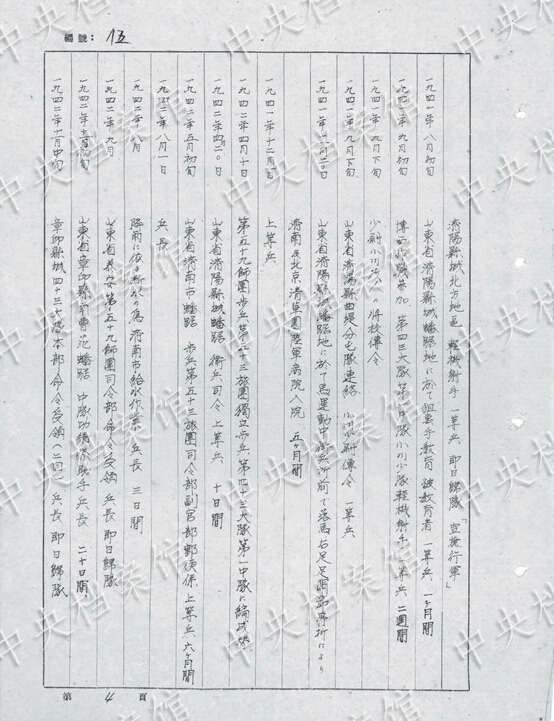 編號：15
一九四一年八月初旬 濟陽縣城北方地區 輕機射手 一等兵 即日歸隊「空擔行軍」
一九四一年 山東省濟陽縣城蟠踞地ニ於テ 教育 被教育者 一等兵 一ヶ月間
一九四一年九月初旬 博西作戰參加 第四三大隊第一中隊小川少隊輕機射手 一等兵 二週間
一九四一年九月下旬 少尉小川 ノ將校傳令
一九四一年九月下旬 山東省濟陽縣曲堤分屯隊連絡 小川少尉傳令 一等兵
一九四一年 山東省濟陽縣城蟠踞地ニ於テ馬運動中衛兵所前デ落馬右足 骨折ニヨリ
濟南及北京清華園陸軍病院入院 五ヶ月間
一九四一年十二月一日 上等兵
一九四二年四月十日 第五十九師團步兵第五十三旅團獨立步兵第四十三大隊第一中隊ニ編成
一九四二年四月二〇日 山東省濟陽縣城蟠踞 衛兵司令 上等兵 十日間
一九四二年五月初旬 山東省濟南市蟠踞 步兵第五十三旅團司令部副官部郵便係 上等兵 六ヶ月間
一九四二年八月一日 兵長
一九四二年八月 降雨ニ依ル 爲濟南市給水作業 兵長 三日間
一九四二年九月 山東省泰安第五十九師團司令部命令受領 兵長 即日歸隊
一九四二年 山東省章邱縣南曹范蟠踞 中隊功績係助手 兵長 二十日間
一九四二年十一月中旬 章邱縣城四十三大隊本部ヘ命令受領 兵長 即日歸隊
第 4 頁
中央档案馆